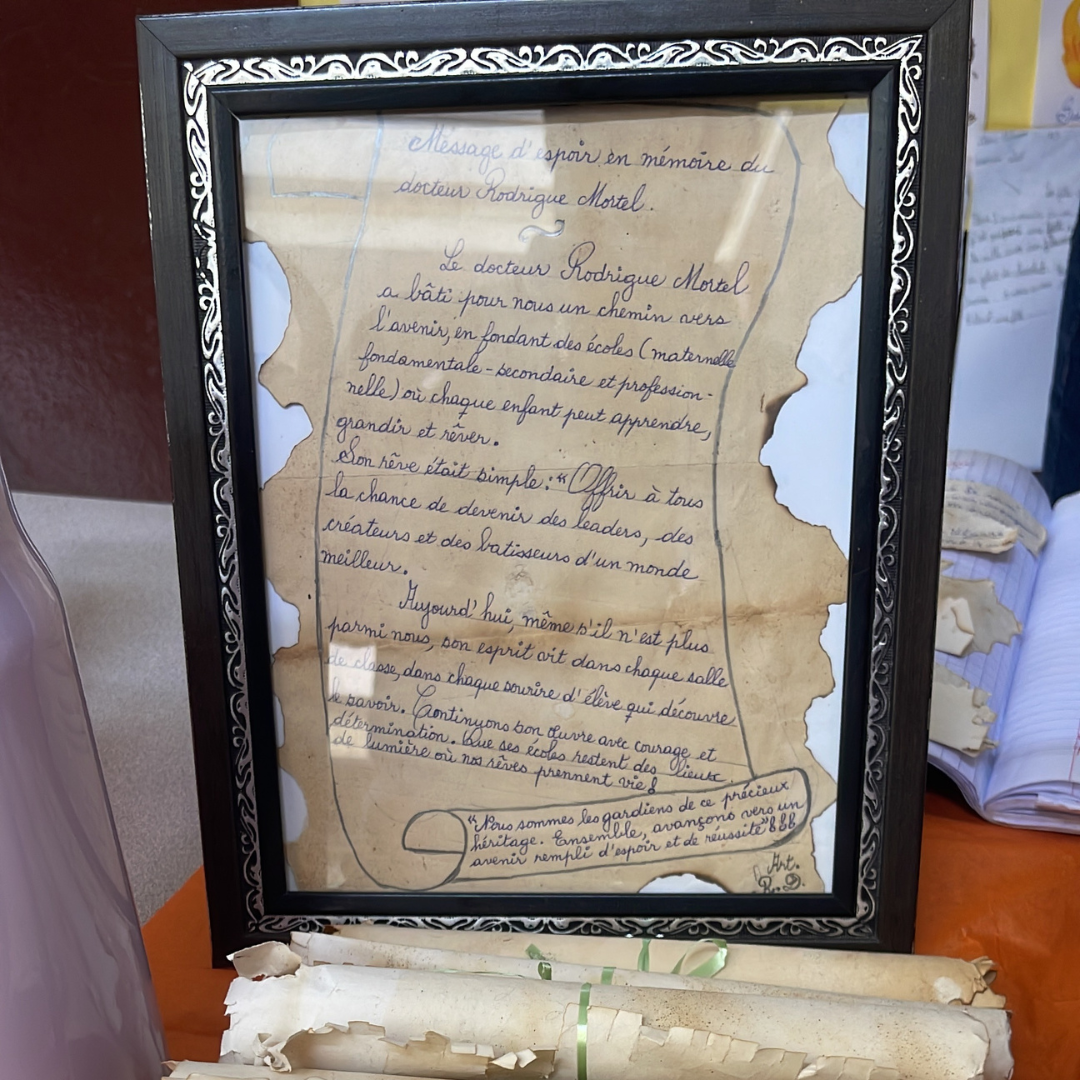 Méssage d'espoir en mémoire du
docteur Rodrigue Mortel.
Le docteur Rodrigue Mortel
a bâti pour nous un chemin vers
l'avenir, en fondant des écoles (maternelle
fondamentale - secondaire et profession-
nelle) où chaque enfant peut apprendre,
grandir et rêver.
Son rêve était simple : "Offrir à tous
la chance de devenir des leaders, des
créateurs et des batisseurs d'un monde
meilleur.
Aujourd'hui, même s'il n'est plus
parmi nous, son esprit vit dans chaque salle
de classe, dans chaque sourire d'élève qui découvre
le savoir. Continuons son œuvre avec courage et
détermination. Que ses écoles restent des lieux
de lumière où nos rêves prennent vie!
"Nous sommes les gardiens de ce précieux
héritage. Ensemble, avançons vers un
avenir rempli d'espoir et de réussite"!!!
Art.
R. D.